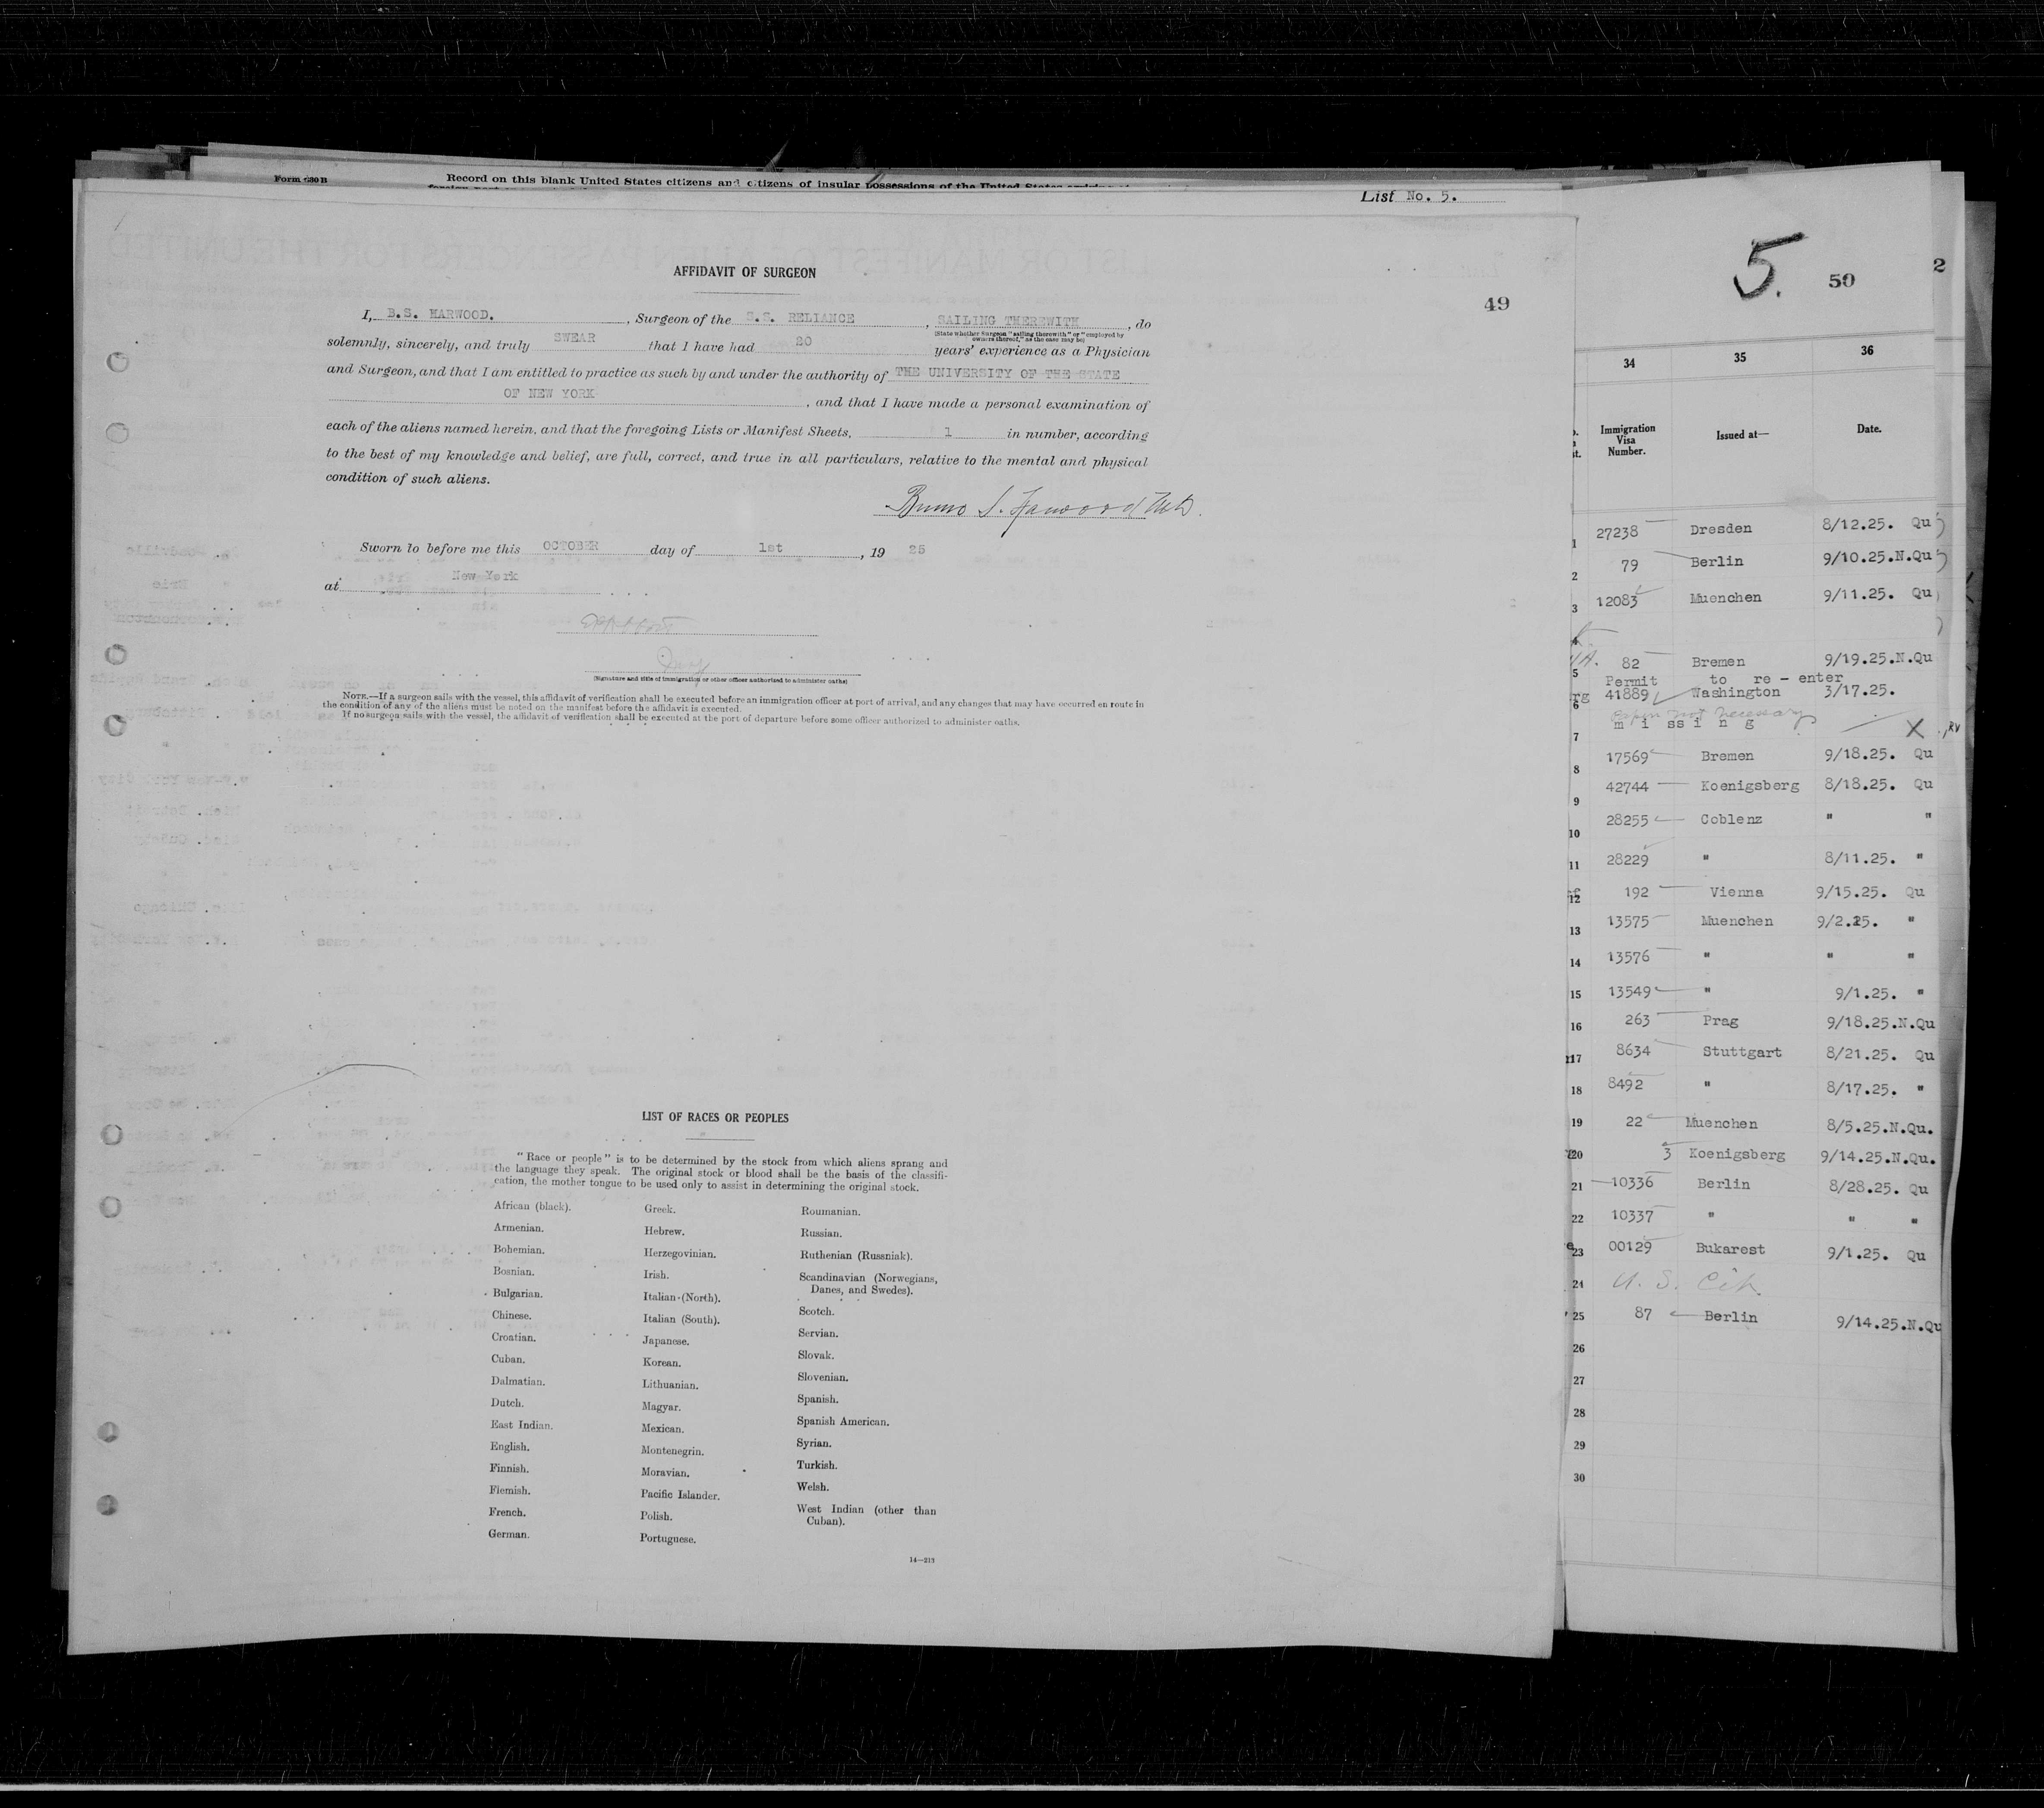 Form 630 B
Record on this blank United States citizens and citizens of insular possessions of the United States
List No. 5.
AFFIDAVIT OF SURGEON
49
I, B.S. HARWOOD. , Surgeon of the S.S. RELIANCE , SAILING THEREWITH , do
(State whether Surgeon "sailing therewith" or "employed by
owners thereof," as the case may be)
solemnly, sincerely, and truly SWEAR that I have had 20 years' experience as a Physician
and Surgeon, and that I am entitled to practice as such by and under the authority of THE UNIVERSITY OF THE STATE
OF NEW YORK , and that I have made a personal examination of
each of the aliens named herein, and that the foregoing Lists or Manifest Sheets, 1 in number, according
to the best of my knowledge and belief, are full, correct, and true in all particulars, relative to the mental and physical
condition of such aliens.
Bruno S. Harwood M.D.
Sworn to before me this OCTOBER day of 1st , 19 25
at New York
(Signature and title of immigration or other officer authorized to administer oaths)
NOTE.—If a surgeon sails with the vessel, this affidavit of verification shall be executed before an immigration officer at port of arrival, and any changes that may have occurred en route in
the condition of any of the aliens must be noted on the manifest before the affidavit is executed.
If no surgeon sails with the vessel, the affidavit of verification shall be executed at the port of departure before some officer authorized to administer oaths.
LIST OF RACES OR PEOPLES
"Race or people" is to be determined by the stock from which aliens sprang and
the language they speak. The original stock or blood shall be the basis of the classifi-
cation, the mother tongue to be used only to assist in determining the original stock.
African (black).
Armenian.
Bohemian.
Bosnian.
Bulgarian.
Chinese.
Croatian.
Cuban.
Dalmatian.
Dutch.
East Indian.
English.
Finnish.
Flemish.
French.
German.
Greek.
Hebrew.
Herzegovinian.
Irish.
Italian (North).
Italian (South).
Japanese.
Korean.
Lithuanian.
Magyar.
Mexican.
Montenegrin.
Moravian.
Pacific Islander.
Polish.
Portuguese.
Roumanian.
Russian.
Ruthenian (Russniak).
Scandinavian (Norwegians,
Danes, and Swedes).
Scotch.
Servian.
Slovak.
Slovenian.
Spanish.
Spanish American.
Syrian.
Turkish.
Welsh.
West Indian (other than
Cuban).
14—213
5.
50
2
34 35 36
Immigration
Visa
Number.
Issued at—
Date.
1 27238 Dresden 8/12.25. Qu
2 79 Berlin 9/10.25.N.Qu
3 12083 Muenchen 9/11.25. Qu
4
5 82 Bremen 9/19.25.N.Qu
Permit to re - enter
6 41889 Washington 3/17.25.
not necessary
7 m i ss i n g X
8 17569 Bremen 9/18.25. Qu
9 42744 Koenigsberg 8/18.25. Qu
10 28255 Coblenz " "
11 28229 " 8/11.25. "
12 192 Vienna 9/15.25. Qu
13 13575 Muenchen 9/2.25. "
14 13576 " " "
15 13549 " 9/1.25. "
16 263 Prag 9/18.25.N.Qu
17 8634 Stuttgart 8/21.25. Qu
18 8492 " 8/17.25. "
19 22 Muenchen 8/5.25.N.Qu.
20 3 Koenigsberg 9/14.25.N.Qu.
21 10336 Berlin 8/28.25. Qu
22 10337 " " "
23 00129 Bukarest 9/1.25. Qu
24 U. S. Cit.
25 87 Berlin 9/14.25.N.Qu
26
27
28
29
30